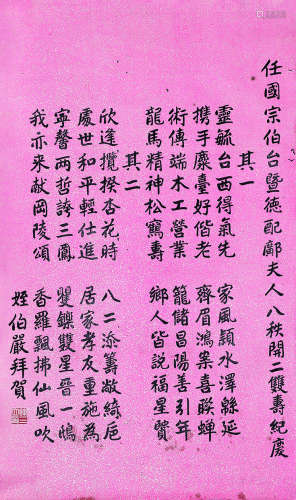 任國宗伯台暨德配鄺夫人八秩開二雙壽紀慶
其一
靈毓台西得氣先　家風穎水澤緜延
携手麋臺好偕老　齊眉鴻案喜聯蟬
術傳端木工營業　籠儲昌陽善引年
龍馬精神松鶴壽　鄉人皆說福星賢
其二
欣逢攬揆杏花時　八二添籌敞綺卮
處世和平輕仕進　居家孝友重施為
寧馨兩哲誇三鳳　矍鑠雙星晉一鴟
我亦来献岡陵頌　香羅飄拂仙風吹
姪伯嚴拜賀